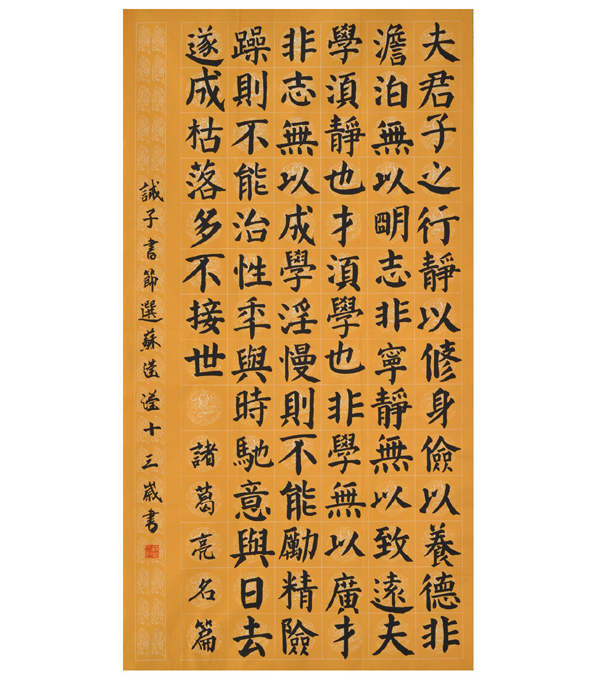 夫君子之行靜以修身儉以養德非
澹泊無以明志非寧靜無以致遠夫
學須靜也才須學也非學無以廣才
非志無以成學淫慢則不能勵精險
躁則不能治性年與時馳意與日去
遂成枯落多不接世 諸葛亮名篇
誡子書節選蘇瀅十三歲書